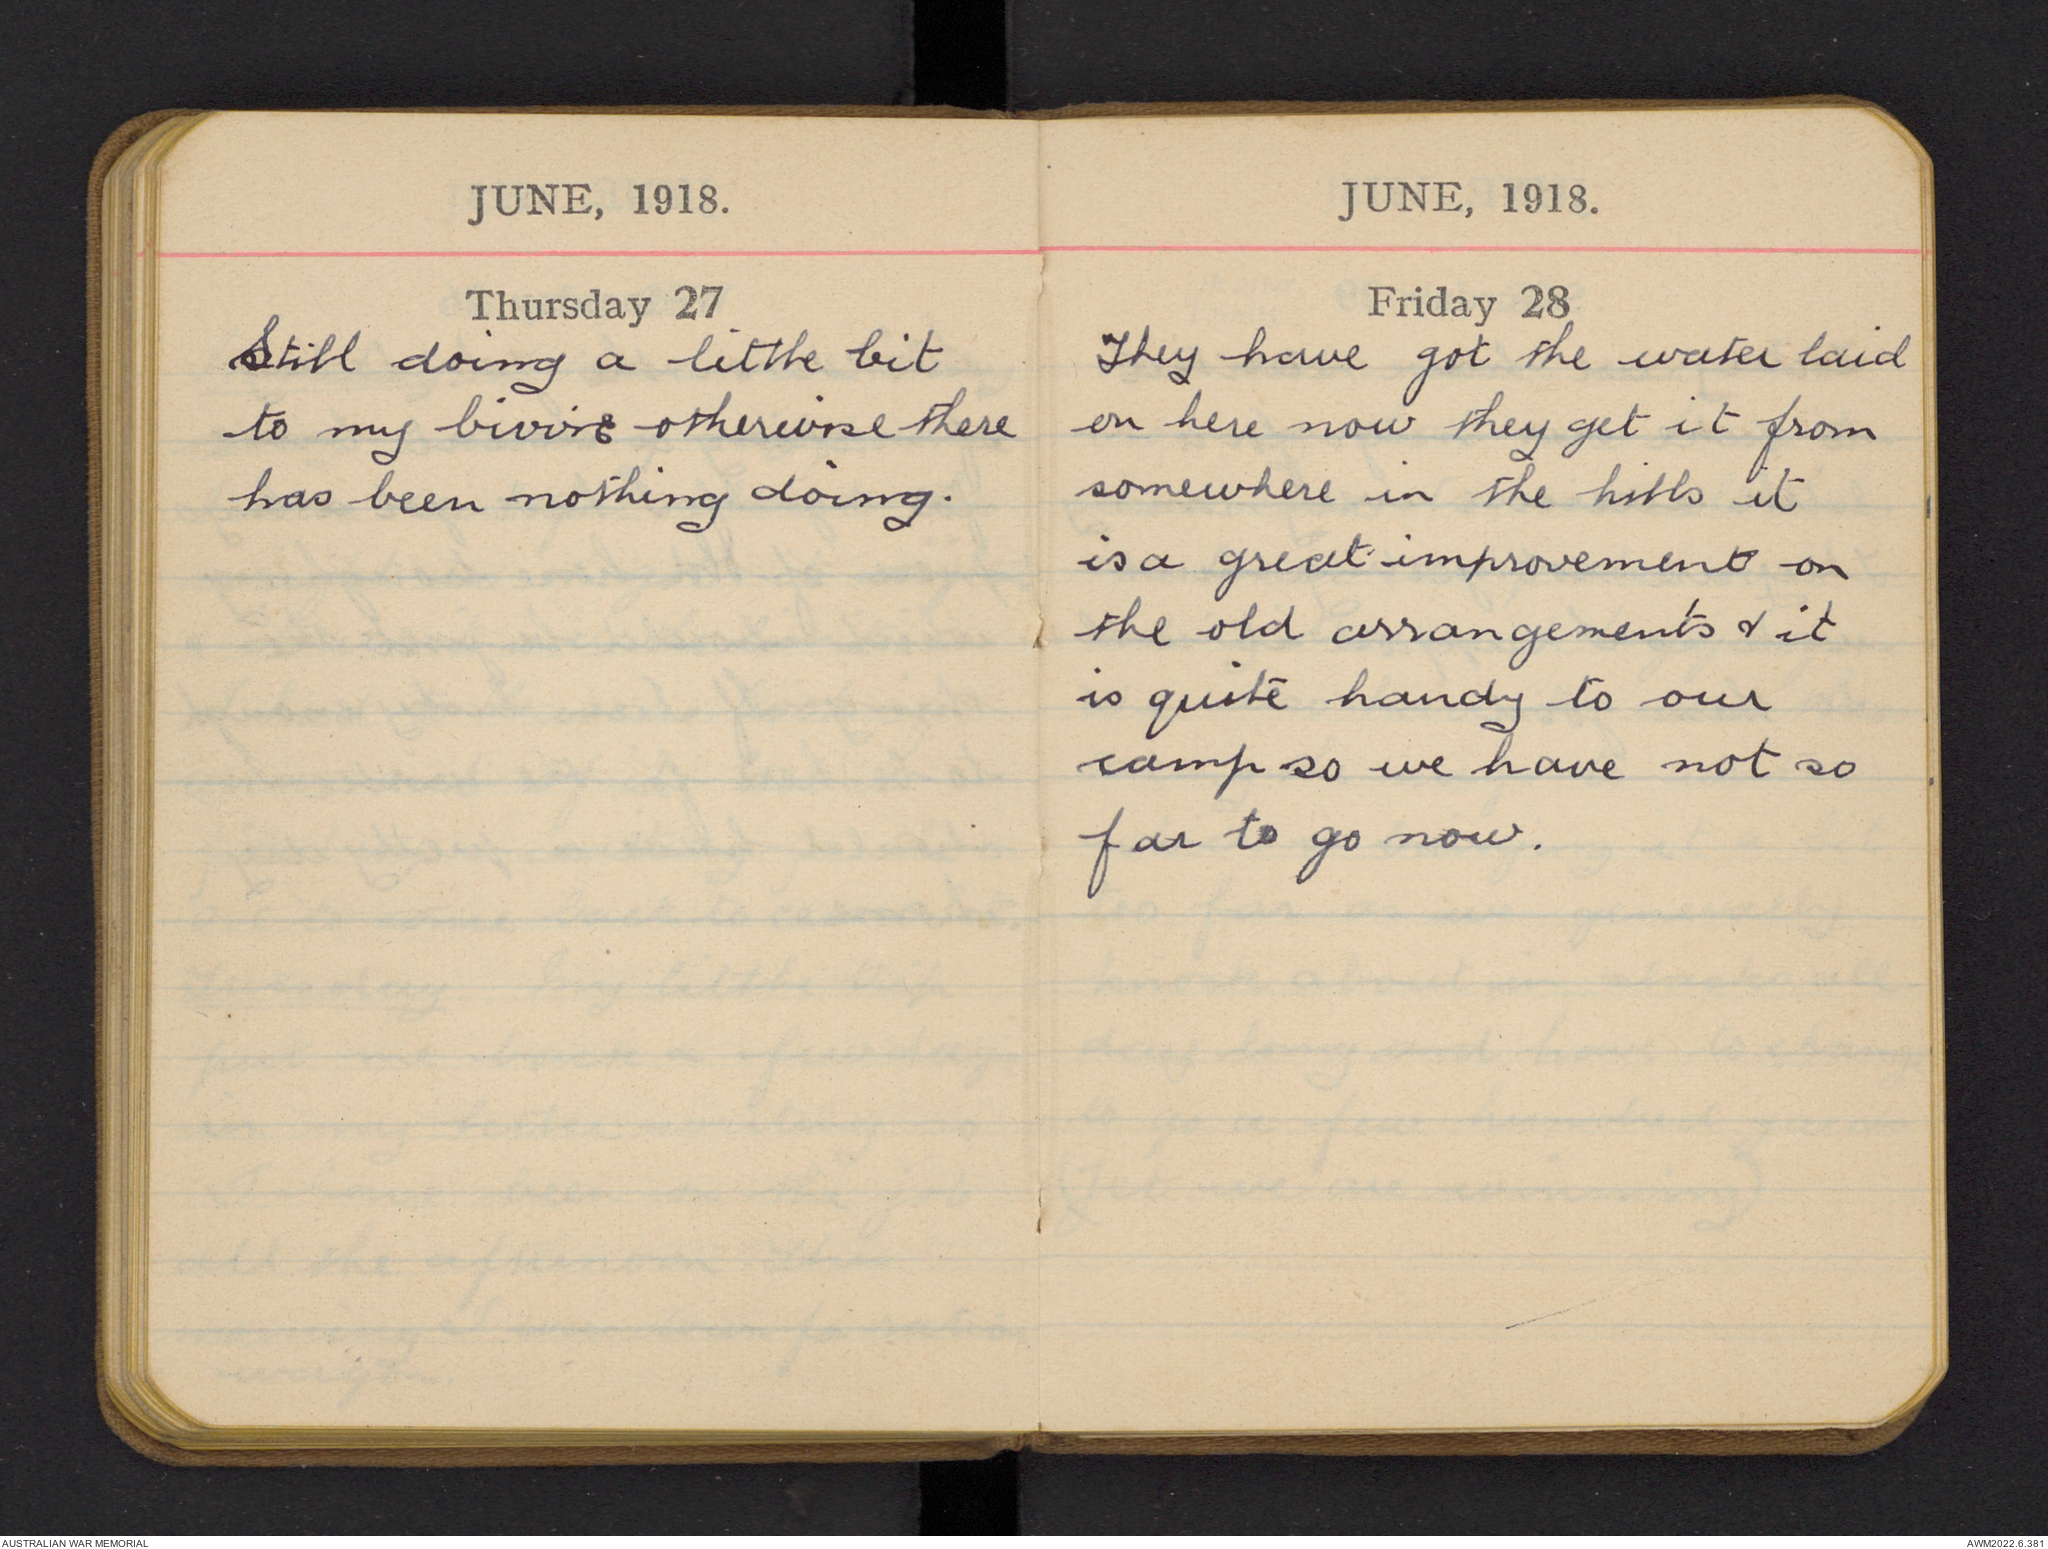 JUNE, 1918.
Thursday 27
Still doing a little bit
to my bivvie otherwise there
has been nothing doing.
JUNE, 1918.
Friday 28
They have got the water laid
on here now they get it from
somewhere in the hills it
is a great improvement on
the old arrangements & it
is quite handy to our
camp so we have not so
far to go now.
AUSTRALIAN WAR MEMORIAL
AWM2022.6.381